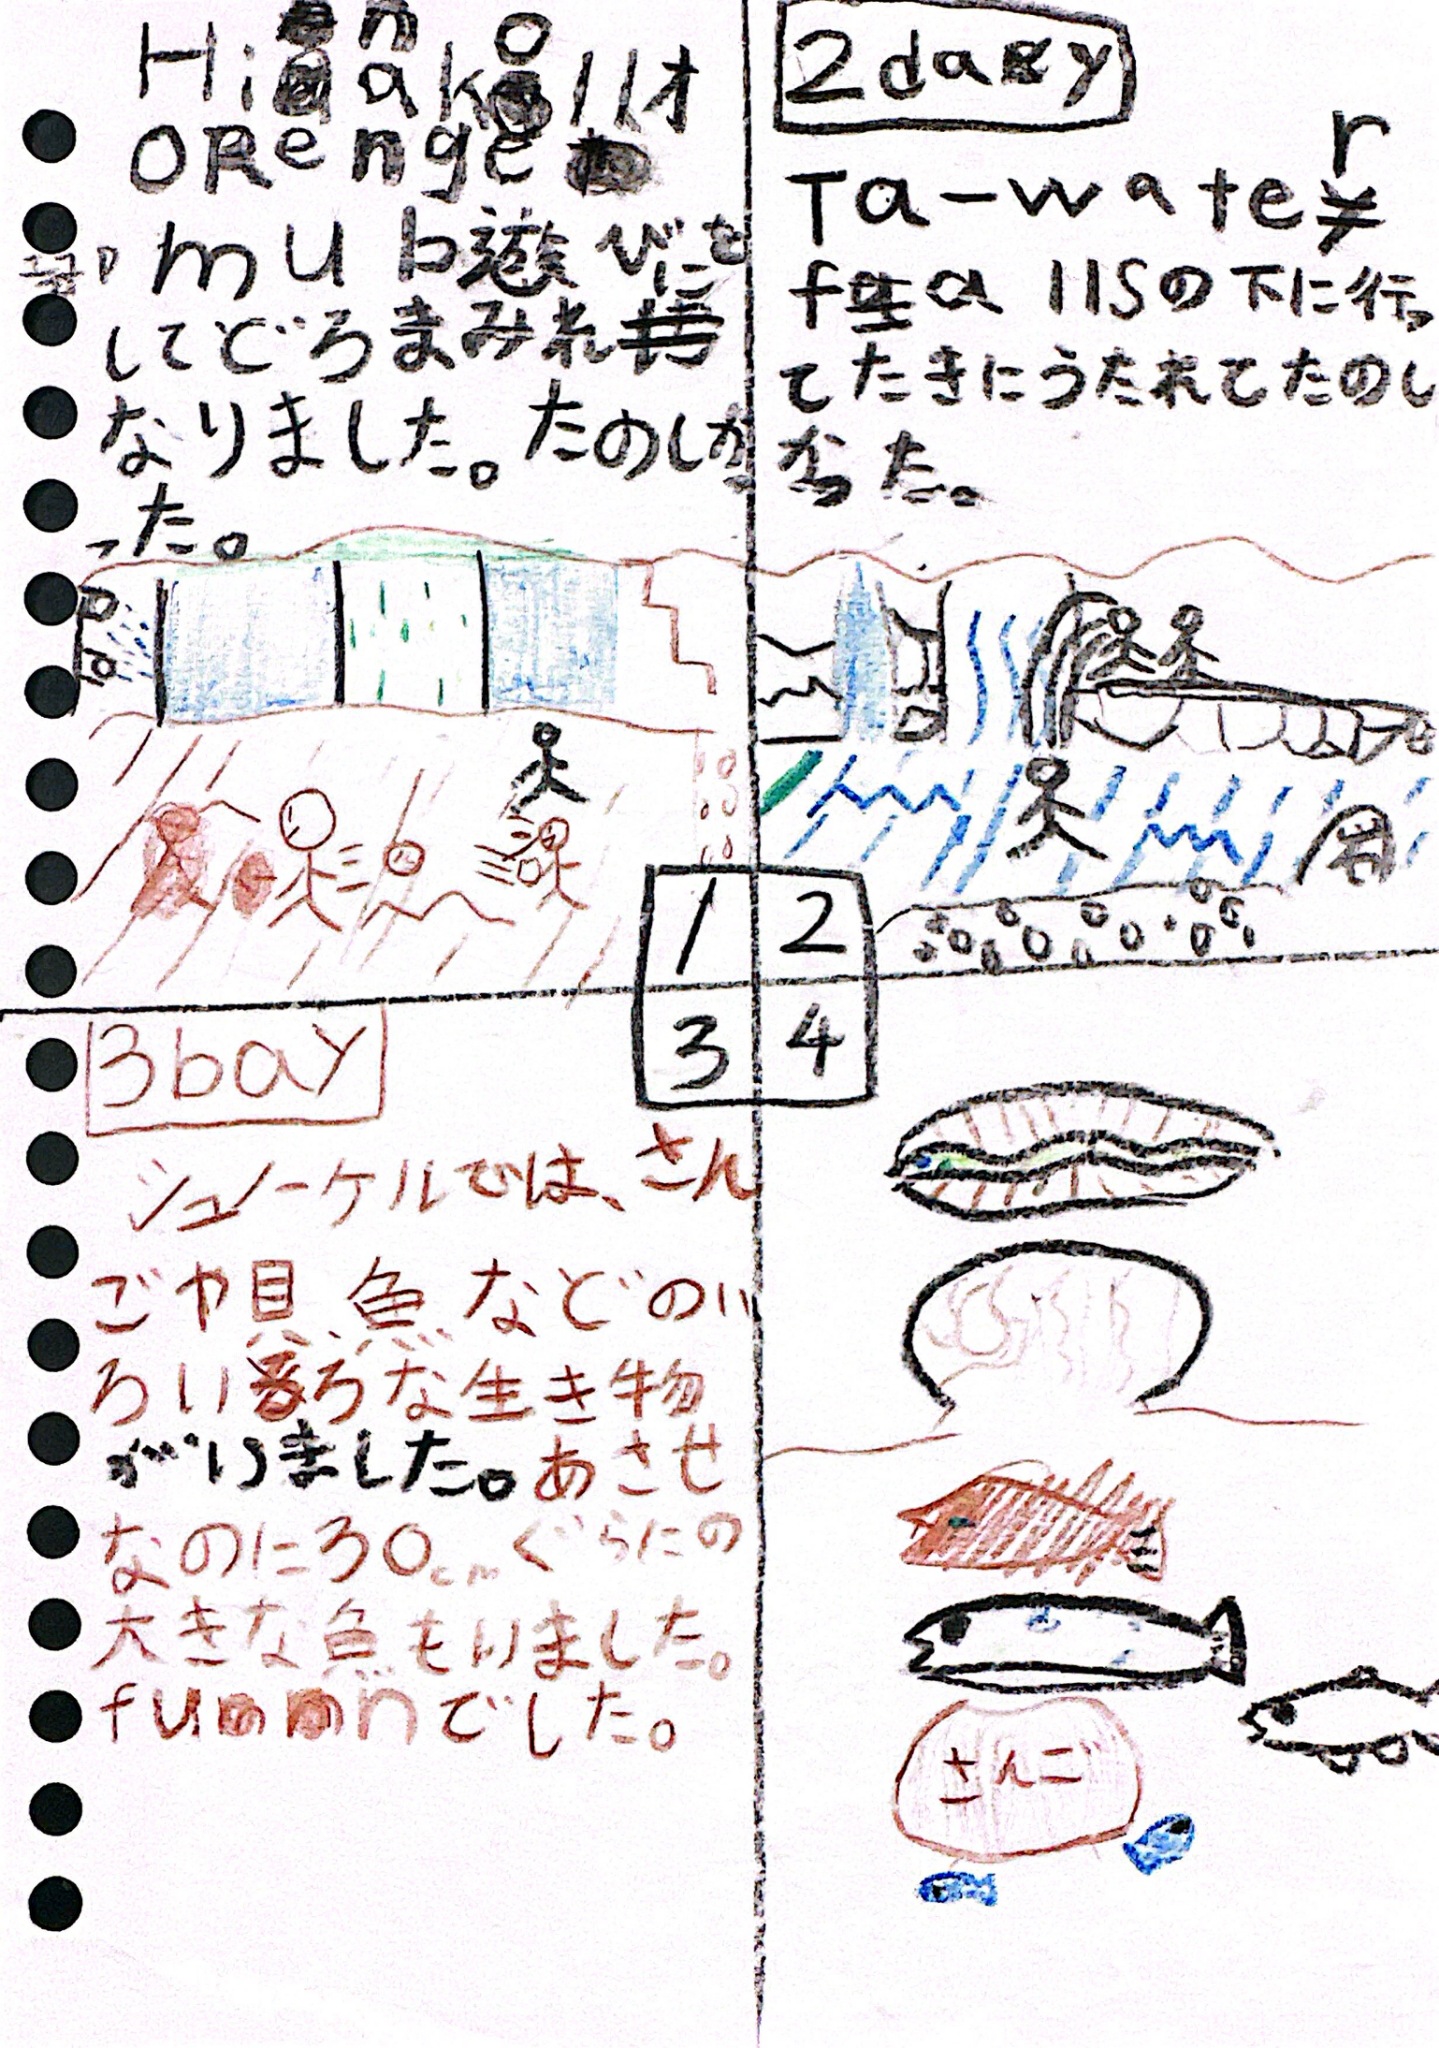 Hinako llオ
orenge
mub遊びを
してどろまみれに
なりました。たのしか
った。
2day
Ta-water
fa llSの下に行っ
てたきにうたれてたのし
かった。
1 2
3 4
3bay
シュノーケルでは、さん
ごや貝 魚などのい
ろいろな生き物
がいました。あさせ
なのに30cmぐらにの
大きな魚もいました。
funでした。
さんご